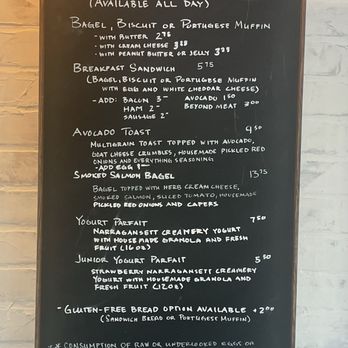 (AVAILABLE ALL DAY)
BAGEL, BISCUIT OR PORTUGESE MUFFIN
- WITH BUTTER 2.75
- WITH CREAM CHEESE 3.25
- WITH PEANUT BUTTER OR JELLY 3.25
BREAKFAST SANDWICH 5.75
(BAGEL, BISCUIT OR PORTUGESE MUFFIN
WITH EGG AND WHITE CHEDDAR CHEESE)
- ADD: BACON 3- AVOCADO 1.50
HAM 2- BEYOND MEAT 3.00
SAUSAGE 2-
AVOCADO TOAST 9.50
MULTIGRAIN TOAST TOPPED WITH AVOCADO,
GOAT CHEESE CRUMBLES, HOUSEMADE PICKLED RED
ONIONS AND EVERYTHING SEASONING
- ADD EGG
SMOKED SALMON BAGEL 13.75
BAGEL TOPPED WITH HERB CREAM CHEESE,
SMOKED SALMON, SLICED TOMATO, HOUSEMADE
PICKLED RED ONIONS AND CAPERS
YOGURT PARFAIT 7.50
NARRAGANSETT CREAMERY YOGURT
WITH HOUSEMADE GRANOLA AND FRESH
FRUIT (16OZ)
JUNIOR YOGURT PARFAIT 5.50
STRAWBERRY NARRAGANSETT CREAMERY
YOGURT WITH HOUSEMADE GRANOLA AND
FRESH FRUIT (12OZ)
- GLUTEN-FREE BREAD OPTION AVAILABLE +2.00
(SANDWICH BREAD OR PORTUGESE MUFFIN)
CONSUMPTION OF RAW OR UNDERCOOKED EGGS OR